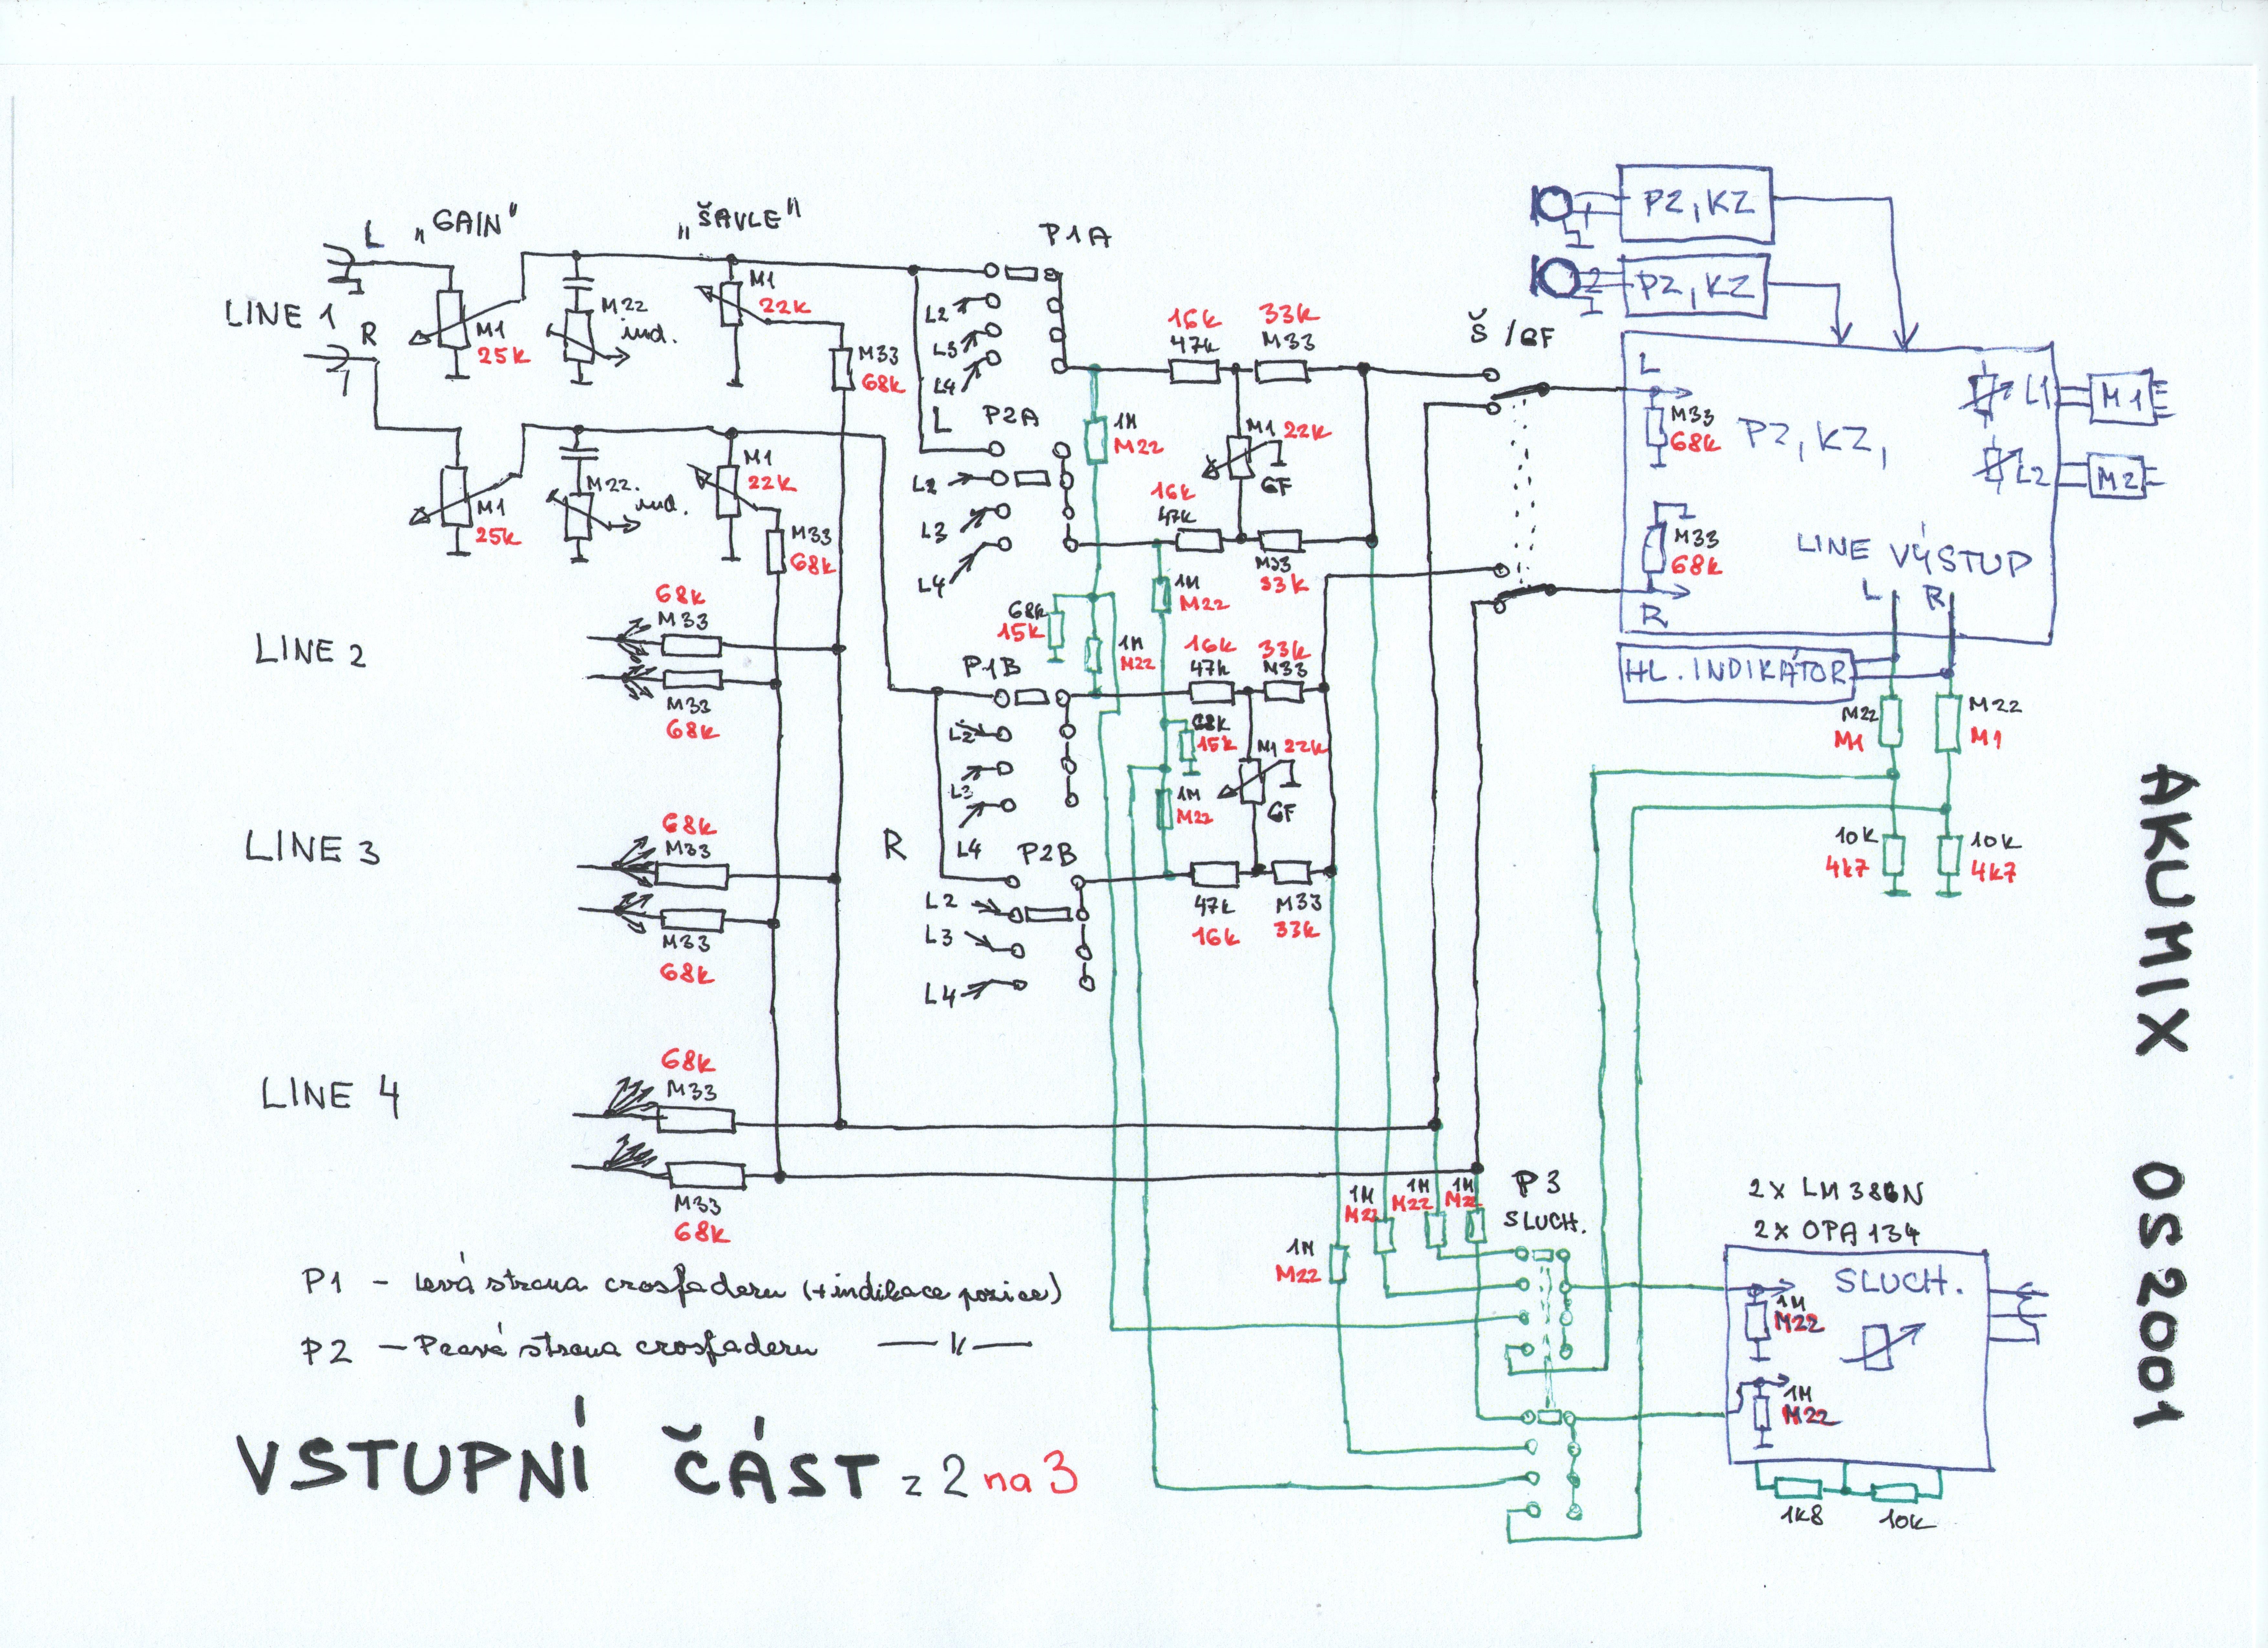 L „GAIN" „ŠAVLE"
LINE 1
R
M1
25k
M22
ind.
M1
22k
M33
68k
M1
25k
M22.
ind.
M1
22k
M33
68k
LINE 2
68k
M33
M33
68k
LINE 3
68k
M33
M33
68k
LINE 4
68k
M33
M33
68k
P1A
L2
L3
L4
L
P2A
L2
L3
L4
P1B
L2
L3
L4
R
P2B
L2
L3
L4
1M
M22
16k
47k
33k
M33
M1 22k
CF
16k
47k
M33
33k
1M
M22
68k
15k
1M
M22
16k
47k
33k
M33
68k
15k
M1 22k
CF
1M
M22
47k
16k
M33
33k
Š /CF
P2, KZ
P2, KZ
L
M33
68k
P2, KZ,
M33
68k
R
LINE VÝSTUP
L R
L1
M1
L2
M2
HL. INDIKÁTOR
M22
M1
M22
M1
10k
4k7
10k
4k7
1M
M22
1M
M22
1M
M22
1M
M22
P3
SLUCH.
2x LM 386N
2x OPA 134
SLUCH.
1M
M22
1M
M22
1k8
10k
P1 - Levá strana crosfaderu (+indikace pozice)
P2 - Pravá strana crosfaderu —— 〃 ——
VSTUPNÍ ČÁST z 2 na 3
AKUMIX OS2001